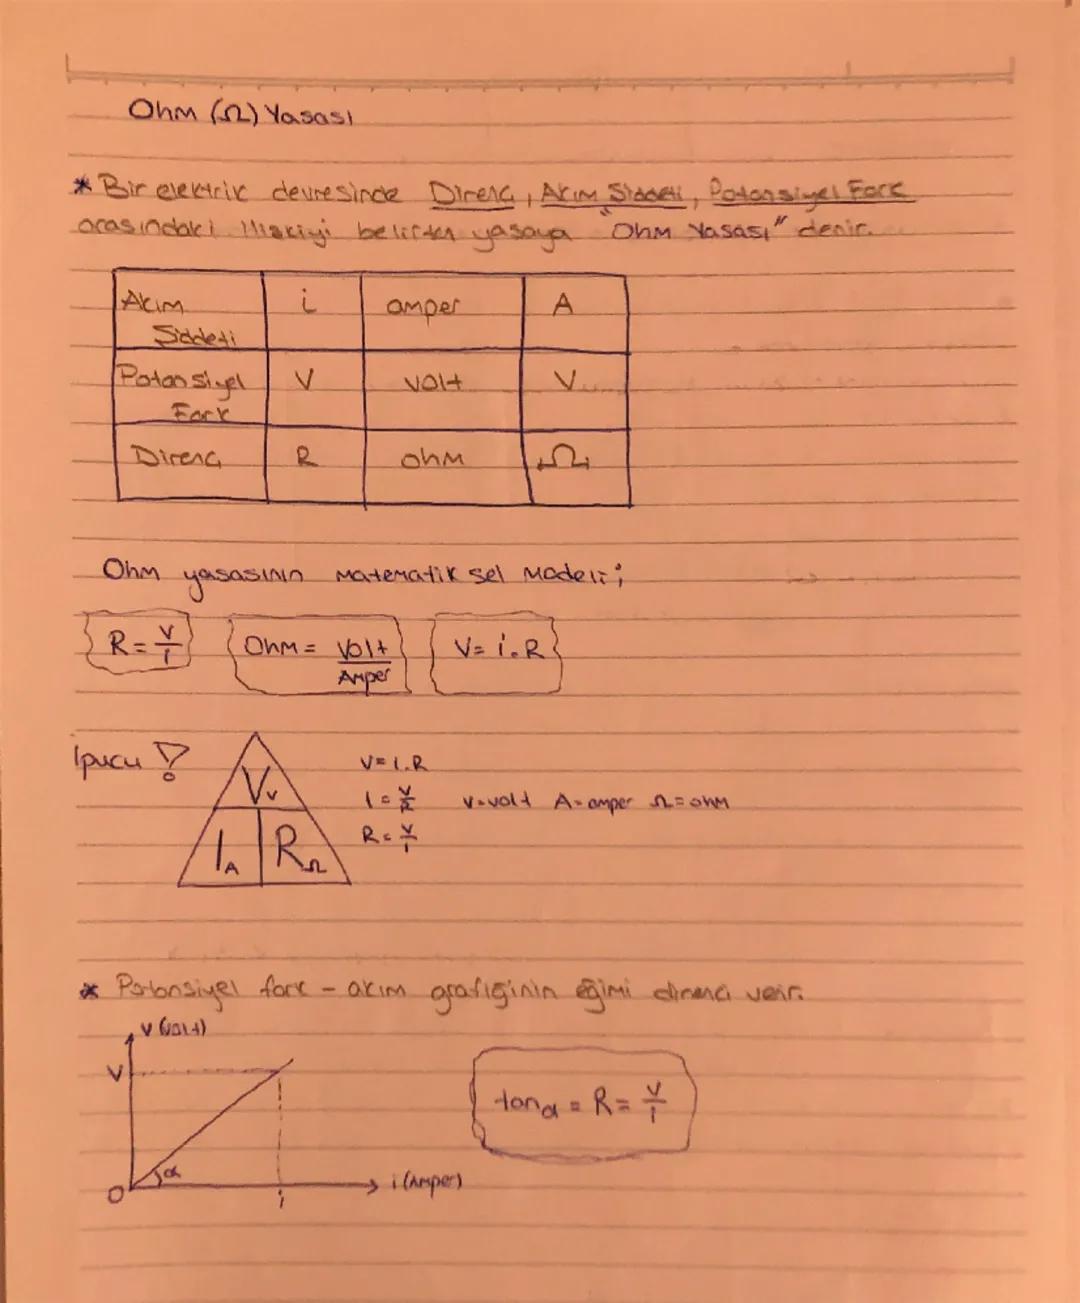 Ohm (Ω) Yasası
* Bir elektrik devresinde Direnç, Akım Şiddeti, Potansiyel Fark
arasındaki ilişkiyi belirten yasaya "Ohm Yasası" denir.
Akım Şiddeti i amper A
Potansiyel Fark V volt V
Direnç R ohm Ω
Ohm yasasının matematik sel modeli;
R = V/i Ohm = Volt/Amper V = i.R
İpucu !
V = I.R
I = V/R V=volt A=amper Ω=ohm
R = V/I
V V
I A R Ω
* Potansiyel fark - akım grafiğinin eğimi direnci verir.
V (volt)
V
tan α = R = V/i
α
O i i (Amper)